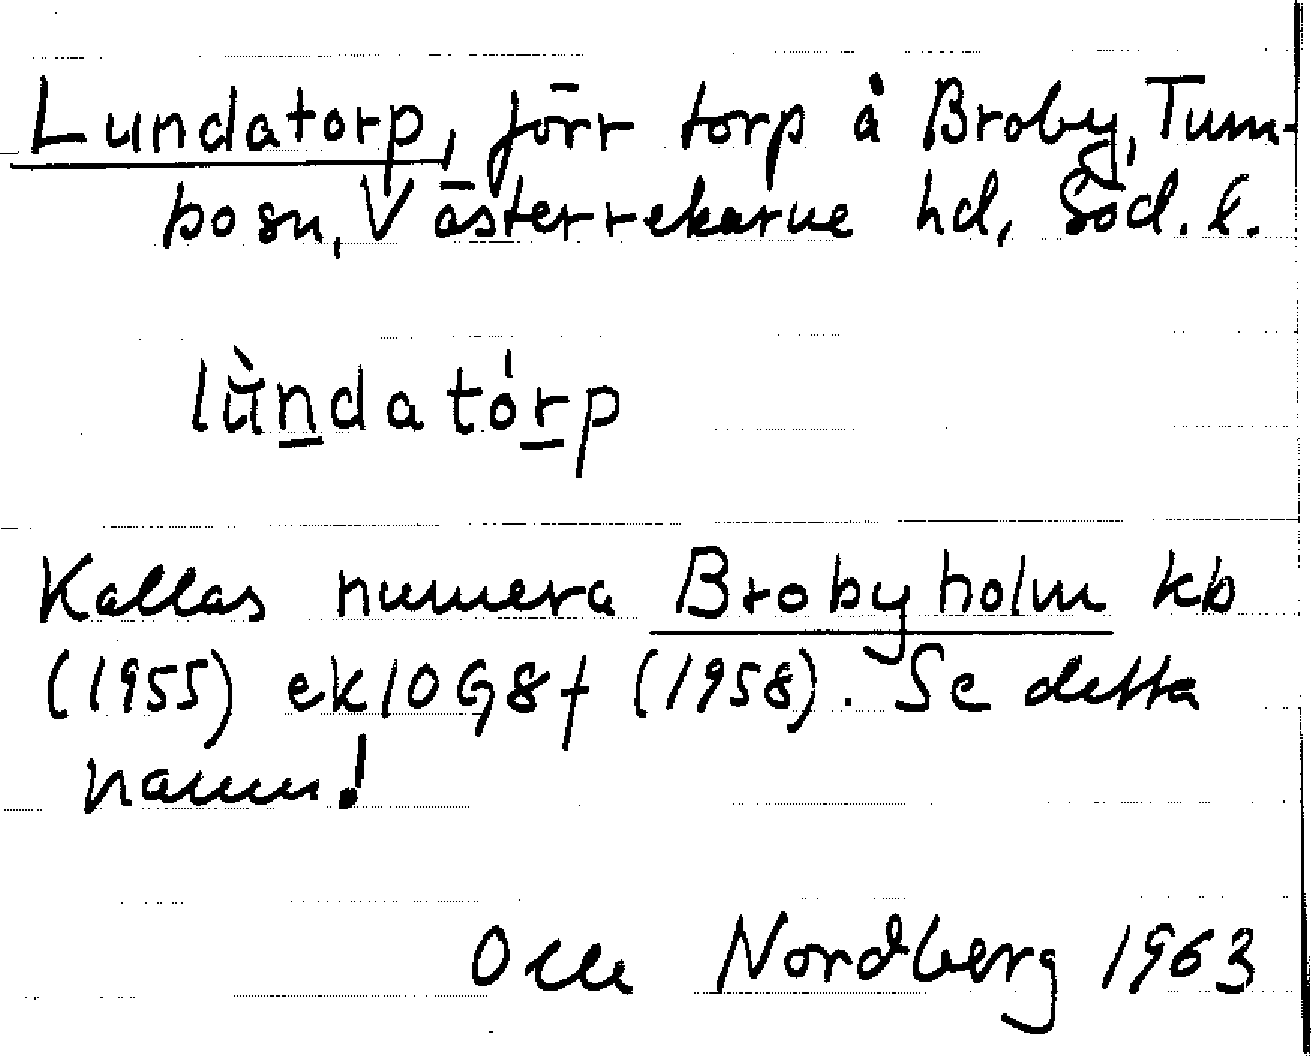 Lundatorp, förr torp å Broby, Tum-
bo sn, Västerrekarne hd, Söd. l.
lùndatórp
Kallas numera Brobyholm kb
(1955) ek 10G8f (1958). Se detta
namn!
Olle Nordberg 1963